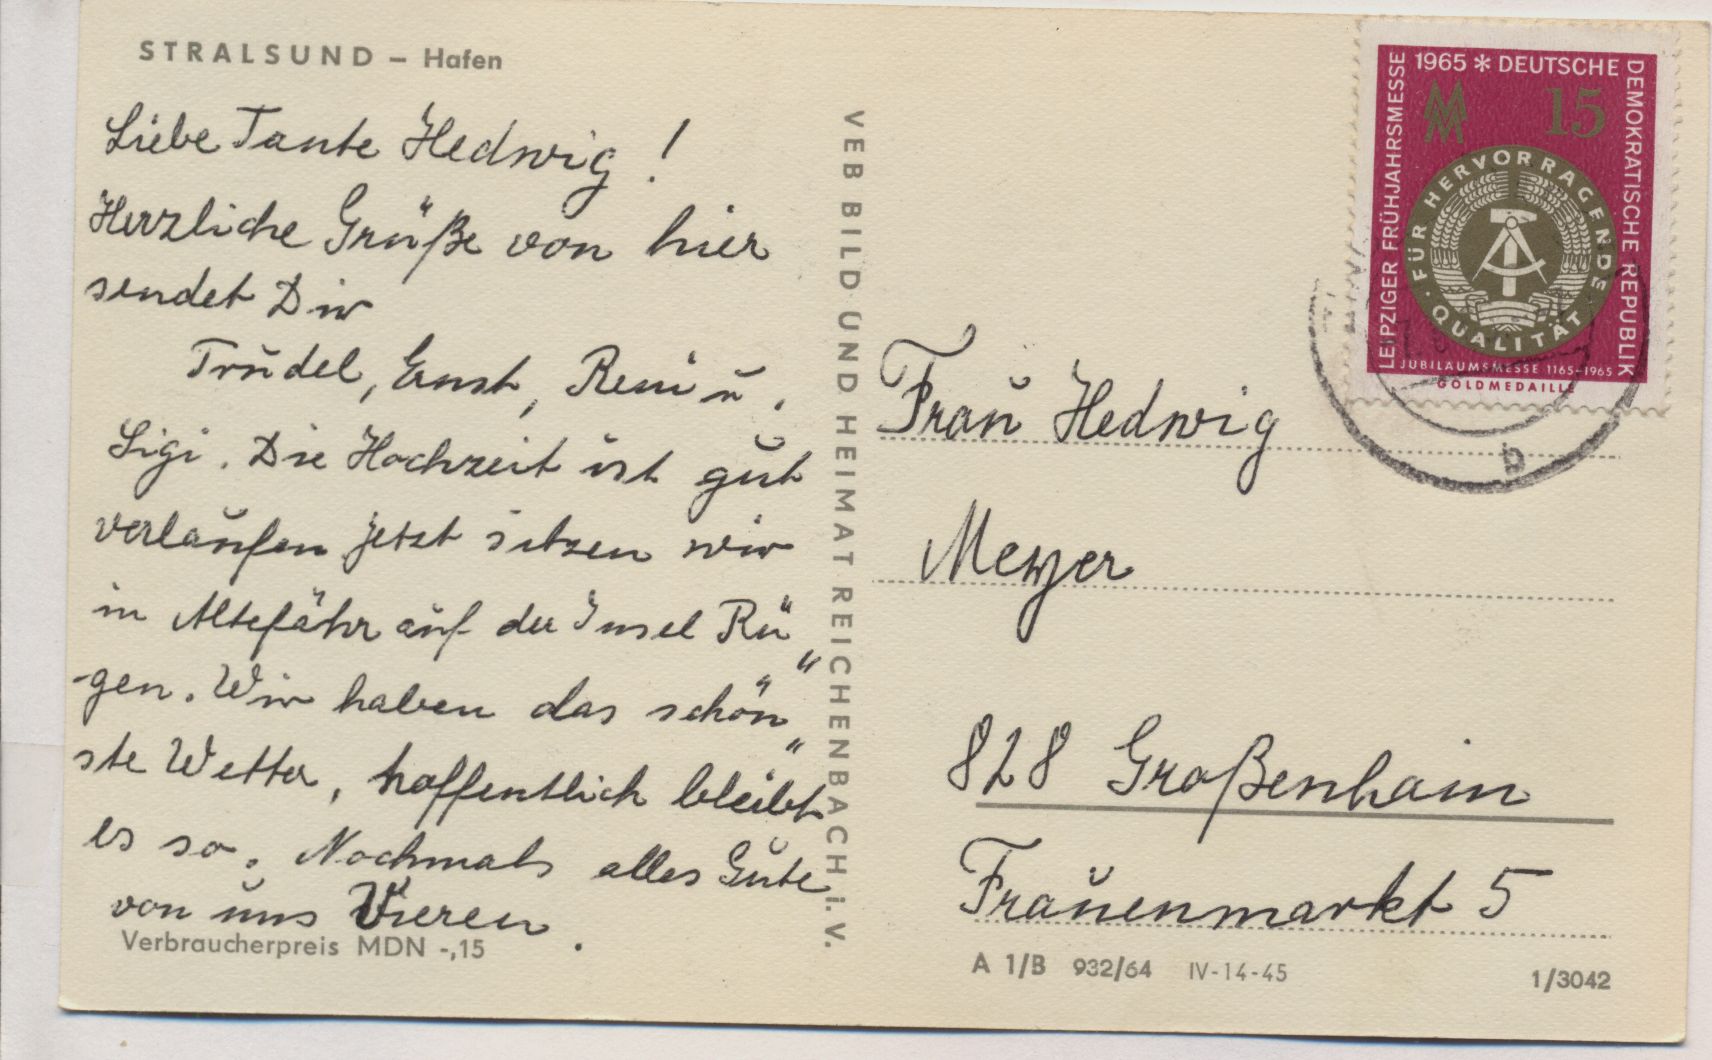 STRALSUND – Hafen
Liebe Tante Hedwig!
Herzliche Grüße von hier
sendet Dir
Trudel, Ernst, Reni u.
Sigi. Die Hochzeit ist gut
verlaufen jetzt sitzen wir
in Altefähr auf der Insel Rü„
-gen. Wir haben das schön„
ste Wetter, hoffentlich bleibt
es so. Nochmals alles Gute
von uns Vieren.
Verbraucherpreis MDN -,15
VEB BILD UND HEIMAT REICHENBACH i. V.
LEIPZIGER FRÜHJAHRSMESSE 1965 * DEUTSCHE DEMOKRATISCHE REPUBLIK
MM
15
FÜR HERVORRAGENDE QUALITÄT
JUBILÄUMSMESSE 1165–1965
GOLDMEDAILLE
Frau Hedwig
Meyer
828 Großenhain
Frauenmarkt 5
A 1/B 932/64 IV-14-45
1/3042